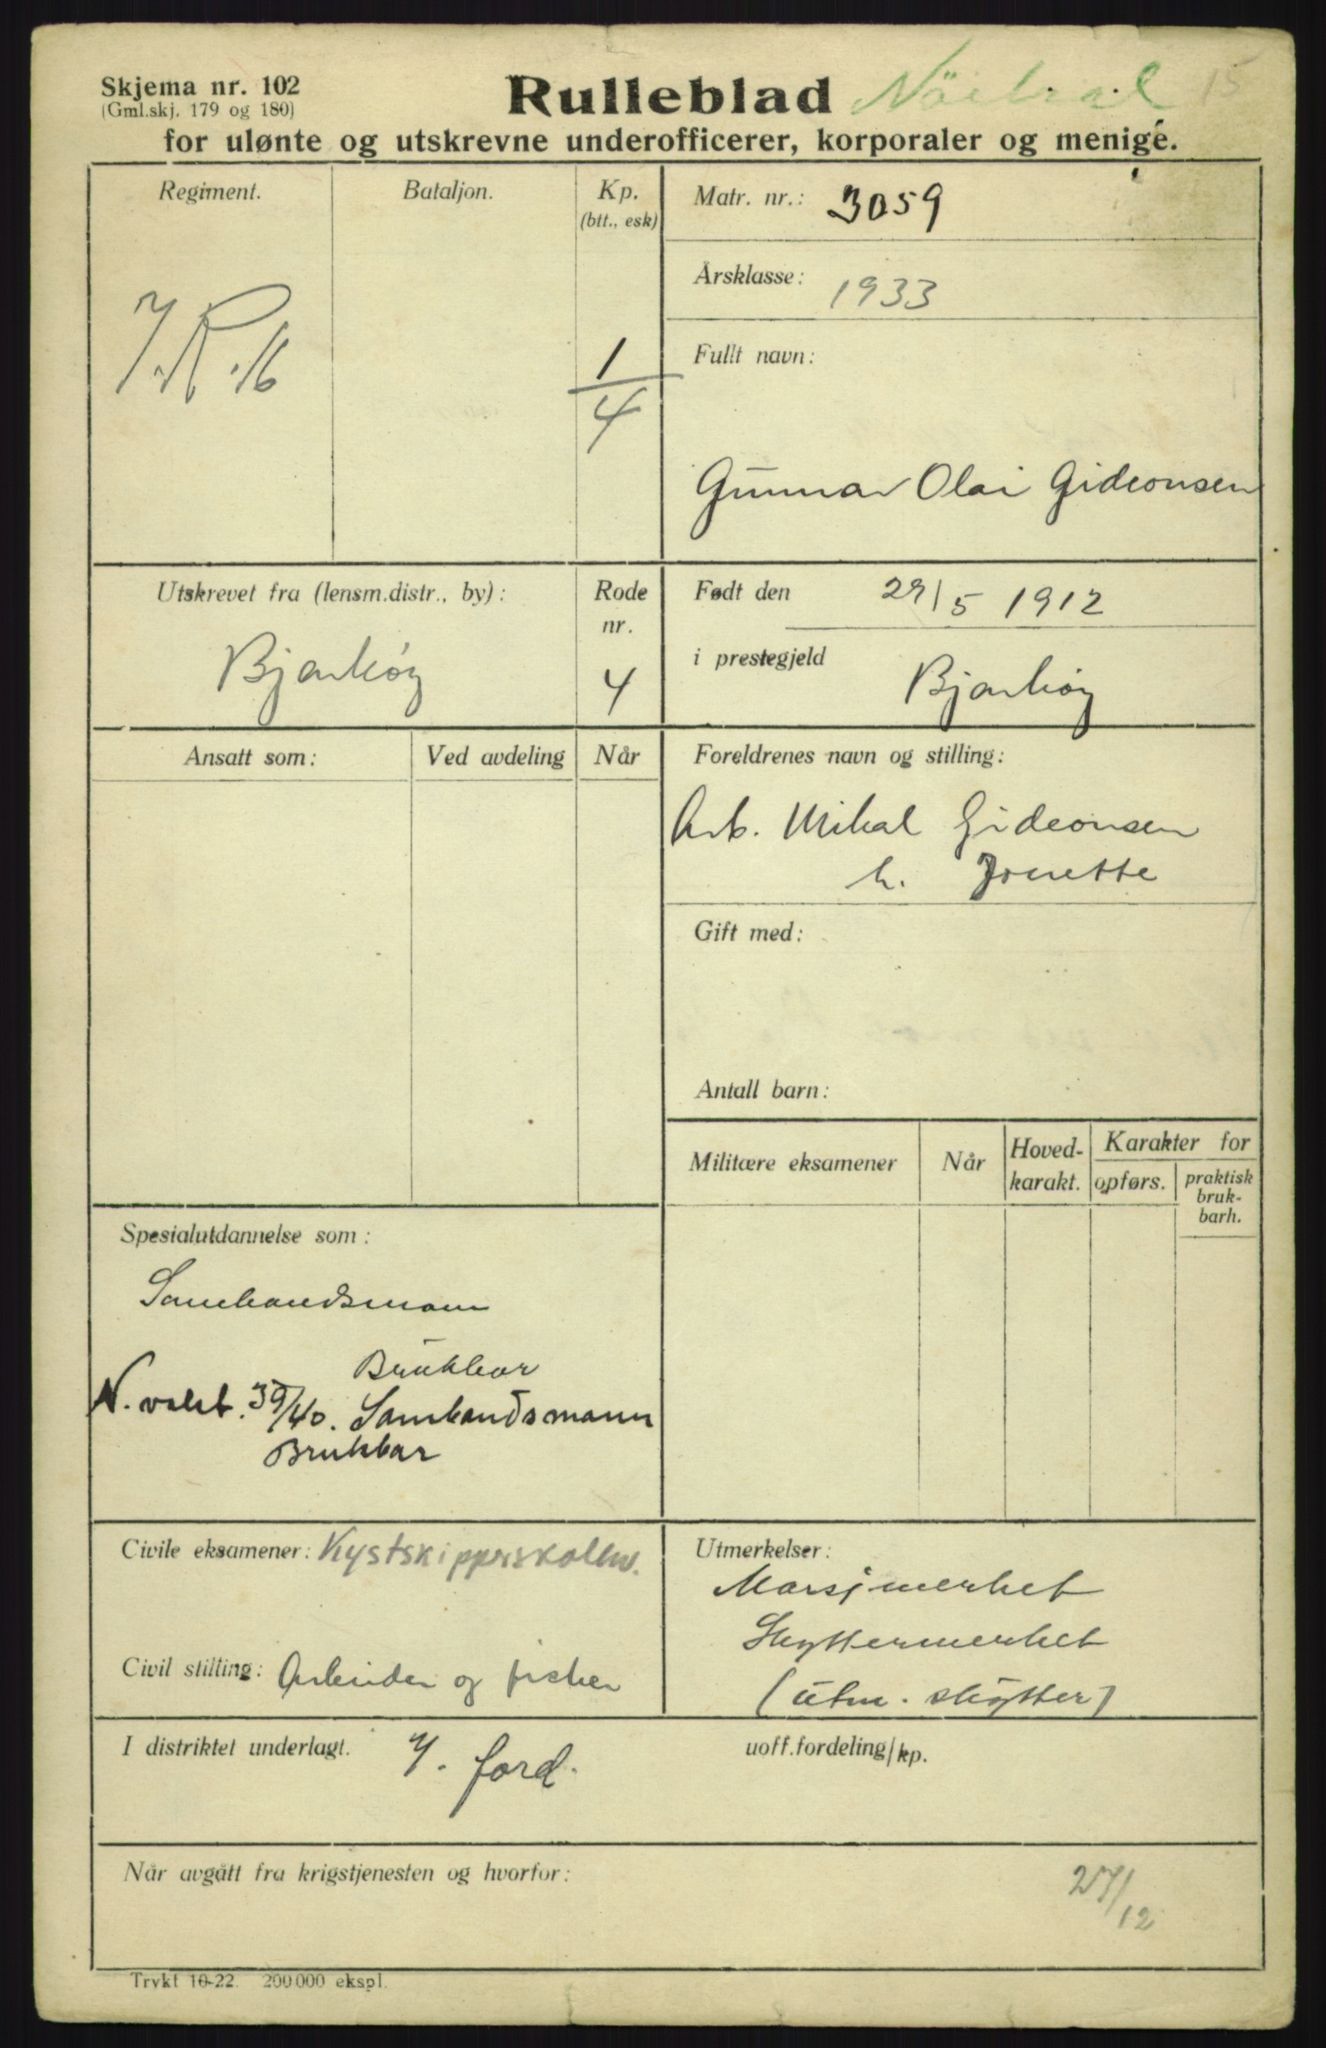 Skjema nr. 102
(Gml.skj. 179 og 180)
Rulleblad
15
for ulønte og utskrevne underofficerer, korporaler og menige.
Regiment.
Bataljon.
Kp.
(btt., esk)
I.R. 16
1/4
Matr. nr.: 3059
Årsklasse: 1933
Fullt navn:
Gunnar Olai Gideonsen
Utskrevet fra (lensm.distr., by):
Bjarkøy
Rode
nr.
4
Født den 29/5 1912
i prestegjeld Bjarkøy
Ansatt som:
Ved avdeling
Når
Foreldrenes navn og stilling:
Arb. Mikal Gideonsen
h. Jonette
Gift med:
Antall barn:
Militære eksamener
Når
Hoved-
karakt.
Karakter for
opførs.
praktisk
bruk-
barh.
Spesialutdannelse som:
Sambandsmann
Brukbar
N. vakt. 39/40. Sambandsmann
Brukbar
Civile eksamener: Kystskipperskolen.
Civil stilling: Arbeider og fisker
Utmerkelser:
Marsjmerket
Skyttermerket
(utm. skytter)
I distriktet underlagt. 7. ford.
uoff.fordeling/kp.
Når avgått fra krigstjenesten og hvorfor:
27/12
Trykt 10-22. 200000 ekspl.